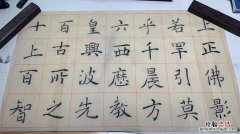 上正佛影
若罕引莫
乎千晨方
六西歷教
皇興波先
百古所之
十上百智